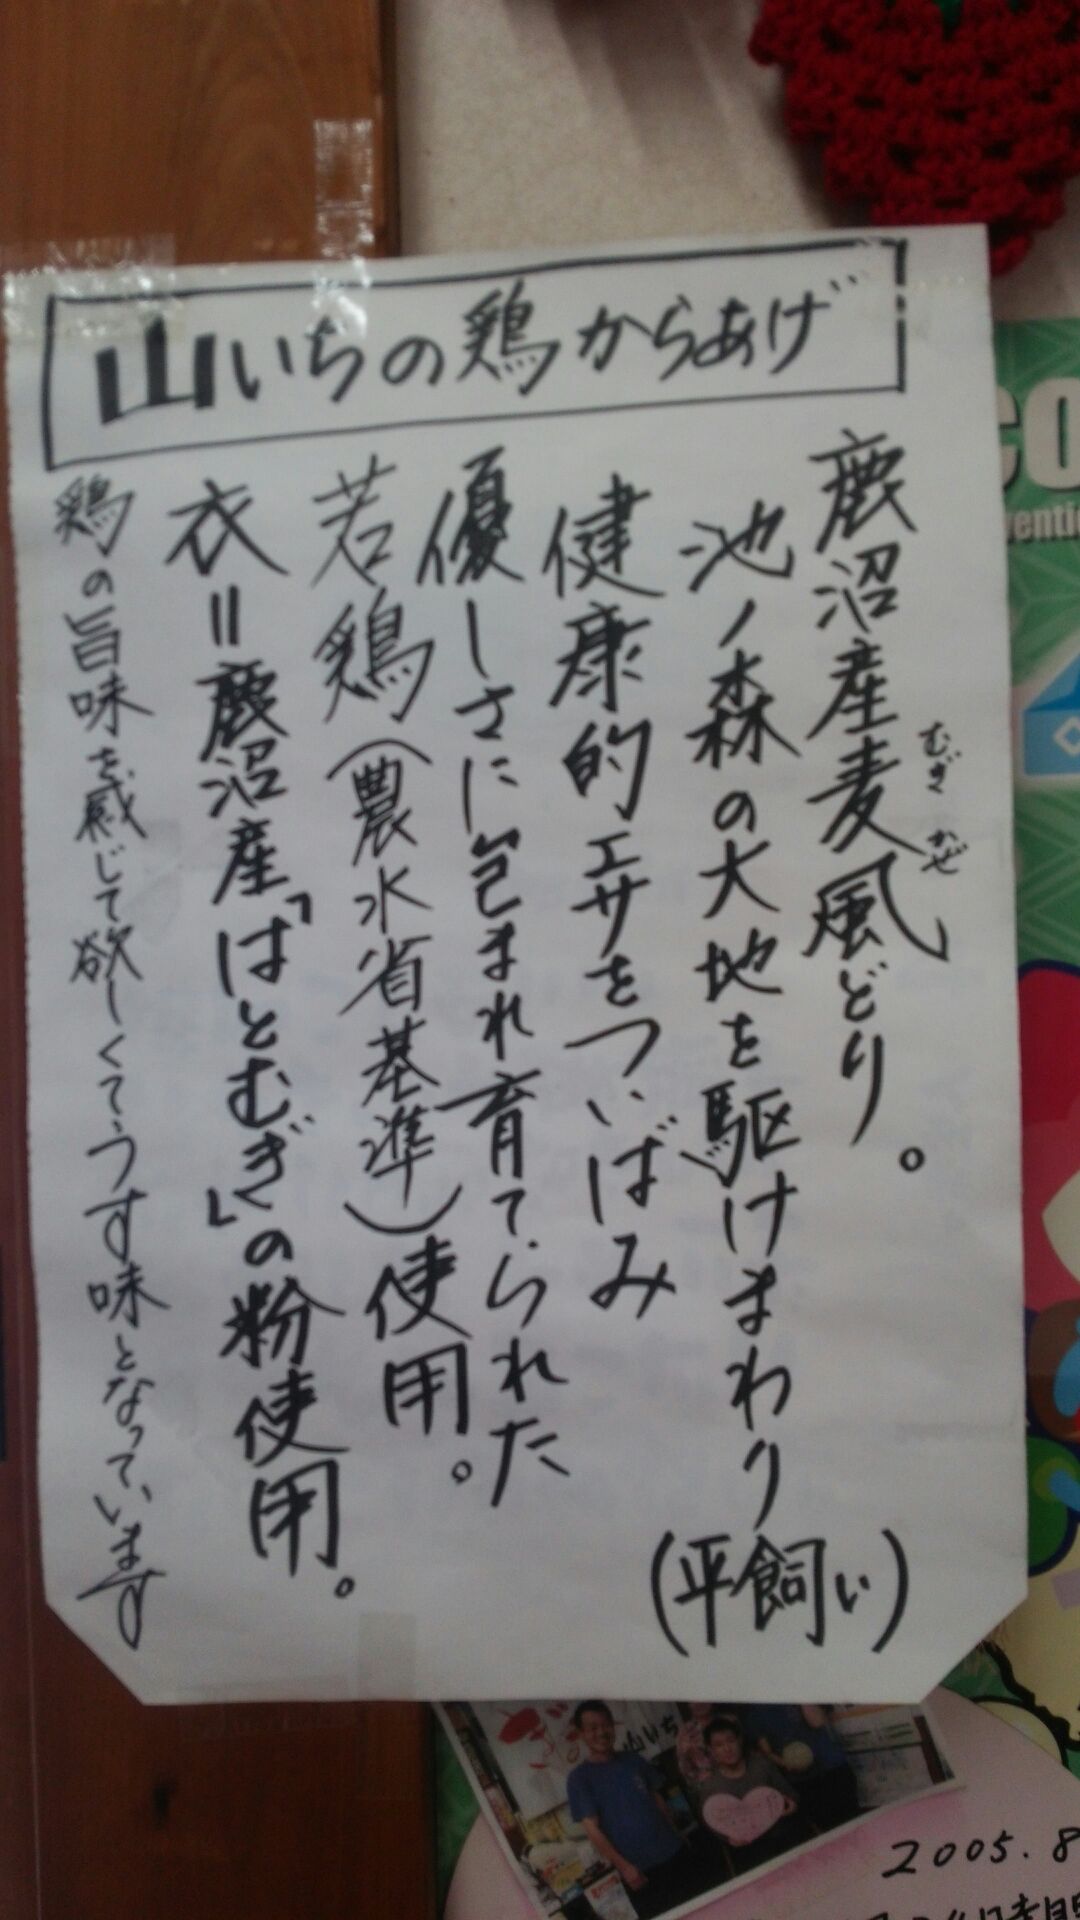 山いちの鶏からあげ
鹿沼産麦風どり。
むぎ かぜ
池ノ森の大地を駆けまわり
(平飼い)
健康的エサをついばみ
優しさに包まれ育てられた
若鶏(農水省基準)使用。
衣=鹿沼産「はとむぎ」の粉使用。
鶏の旨味を感じて欲しくてうす味となっています
山いち
2005.8